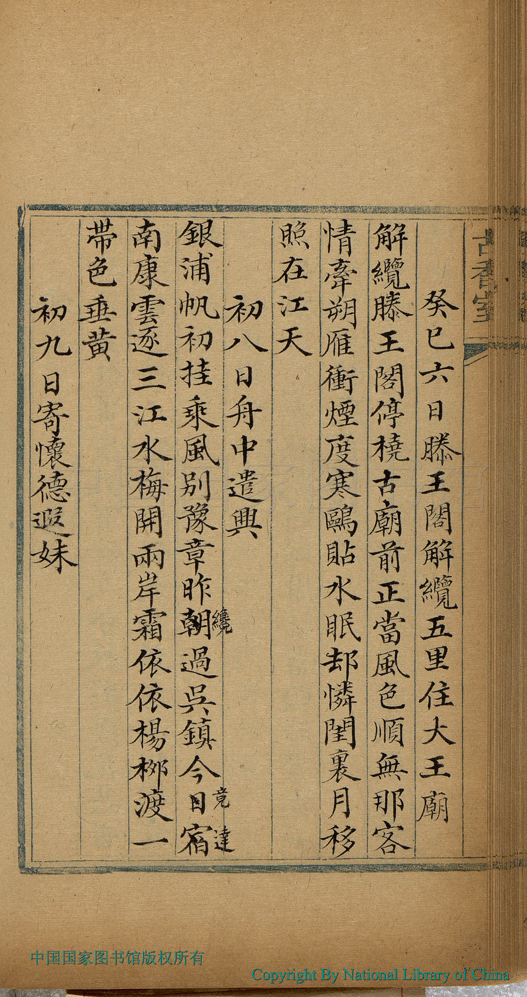 古香室
癸巳六日滕王閣解纜五里住大王廟
解纜滕王閣停橈古廟前正當風色順無那客
情牽朔雁衝煙度寒鷗貼水眠却憐閨裏月移
照在江天
初八日舟中遣興
銀浦帆初挂乘風別豫章昨朝過吳鎮今日宿
纔
竟達
南康雲逐三江水梅開兩岸霜依依楊柳渡一
帶色垂黃
初九日寄懷德遐妹
中国国家图书馆版权所有
Copyright By National Library of China